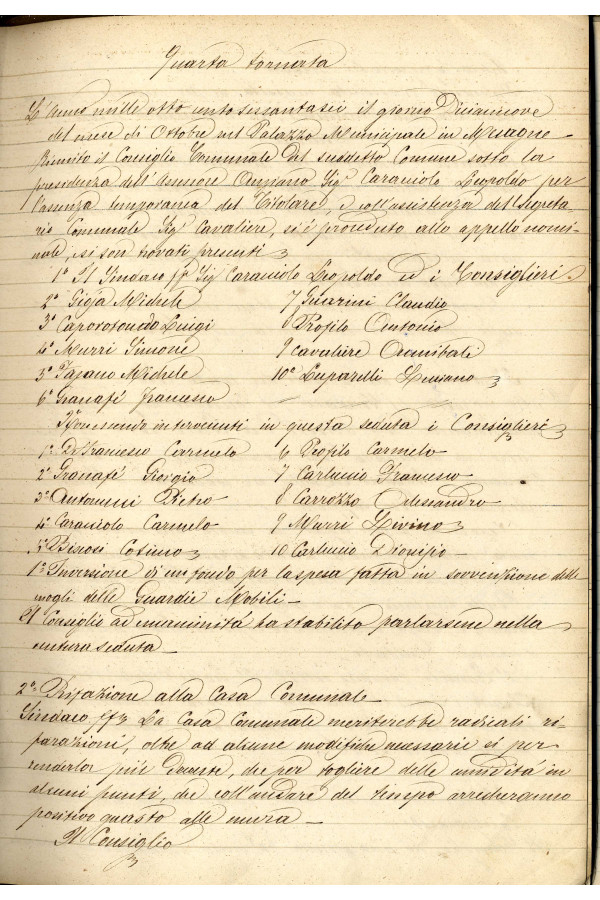 Quarta tornata
L'anno mille otto cento sessantasei il giorno Diciannove
del mese di Ottobre nel Palazzo Municipale in Mesagne –
Riunito il Consiglio Comunale del suddetto Comune sotto la
presidenza dell'Assessore Anziano Sig.r Caracciolo Leopoldo per
l'assenza temporanea del Titolare, e coll'assistenza del Segreta
rio Comunale Sig.r Cavaliere, si è proceduto allo appello nomi-
nale, e si son trovati presenti
1° Il Sindaco ff. Sig.r Caracciolo Leopoldo ed i Consiglieri
2° Gioja Michele
7 Guarini Claudio
3° Caporotondo Luigi
8 Profilo Antonio
4° Murri Simone
9 Cavaliere Annibale
5° Fasano Michele
10° Luparelli Luciano
6° Granafé Francesco
Non essendo intervenuti in questa seduta i Consiglieri
1° DeFrancesco Carmelo
6 Profilo Carmelo
2° Granafé Giorgio
7 Carluccio Francesco
3° Antonucci Pietro
8 Carrozzo Alessandro
4° Caracciolo Carmelo
9 Murri Livino
5° Binosi Cosimo
10 Carluccio Dionisio –
1° Inversione di un fondo per la spesa fatta in sovvenzione delle
mogli delle Guardie Mobili –
Il Consiglio ad unanimità ha stabilito parlarsene nella
ventura seduta –
2° Rifazione alla Casa Comunale –
Sindaco ff. La Casa Comunale meriterebbe radicali ri-
farazioni, oltre ad alcune modifiche necessarie sì per
renderla più decente, che per togliere delle umidità in
alcuni punti, che coll'andare del tempo arrecheranno
positivo guasto alle mura –
Il Consiglio